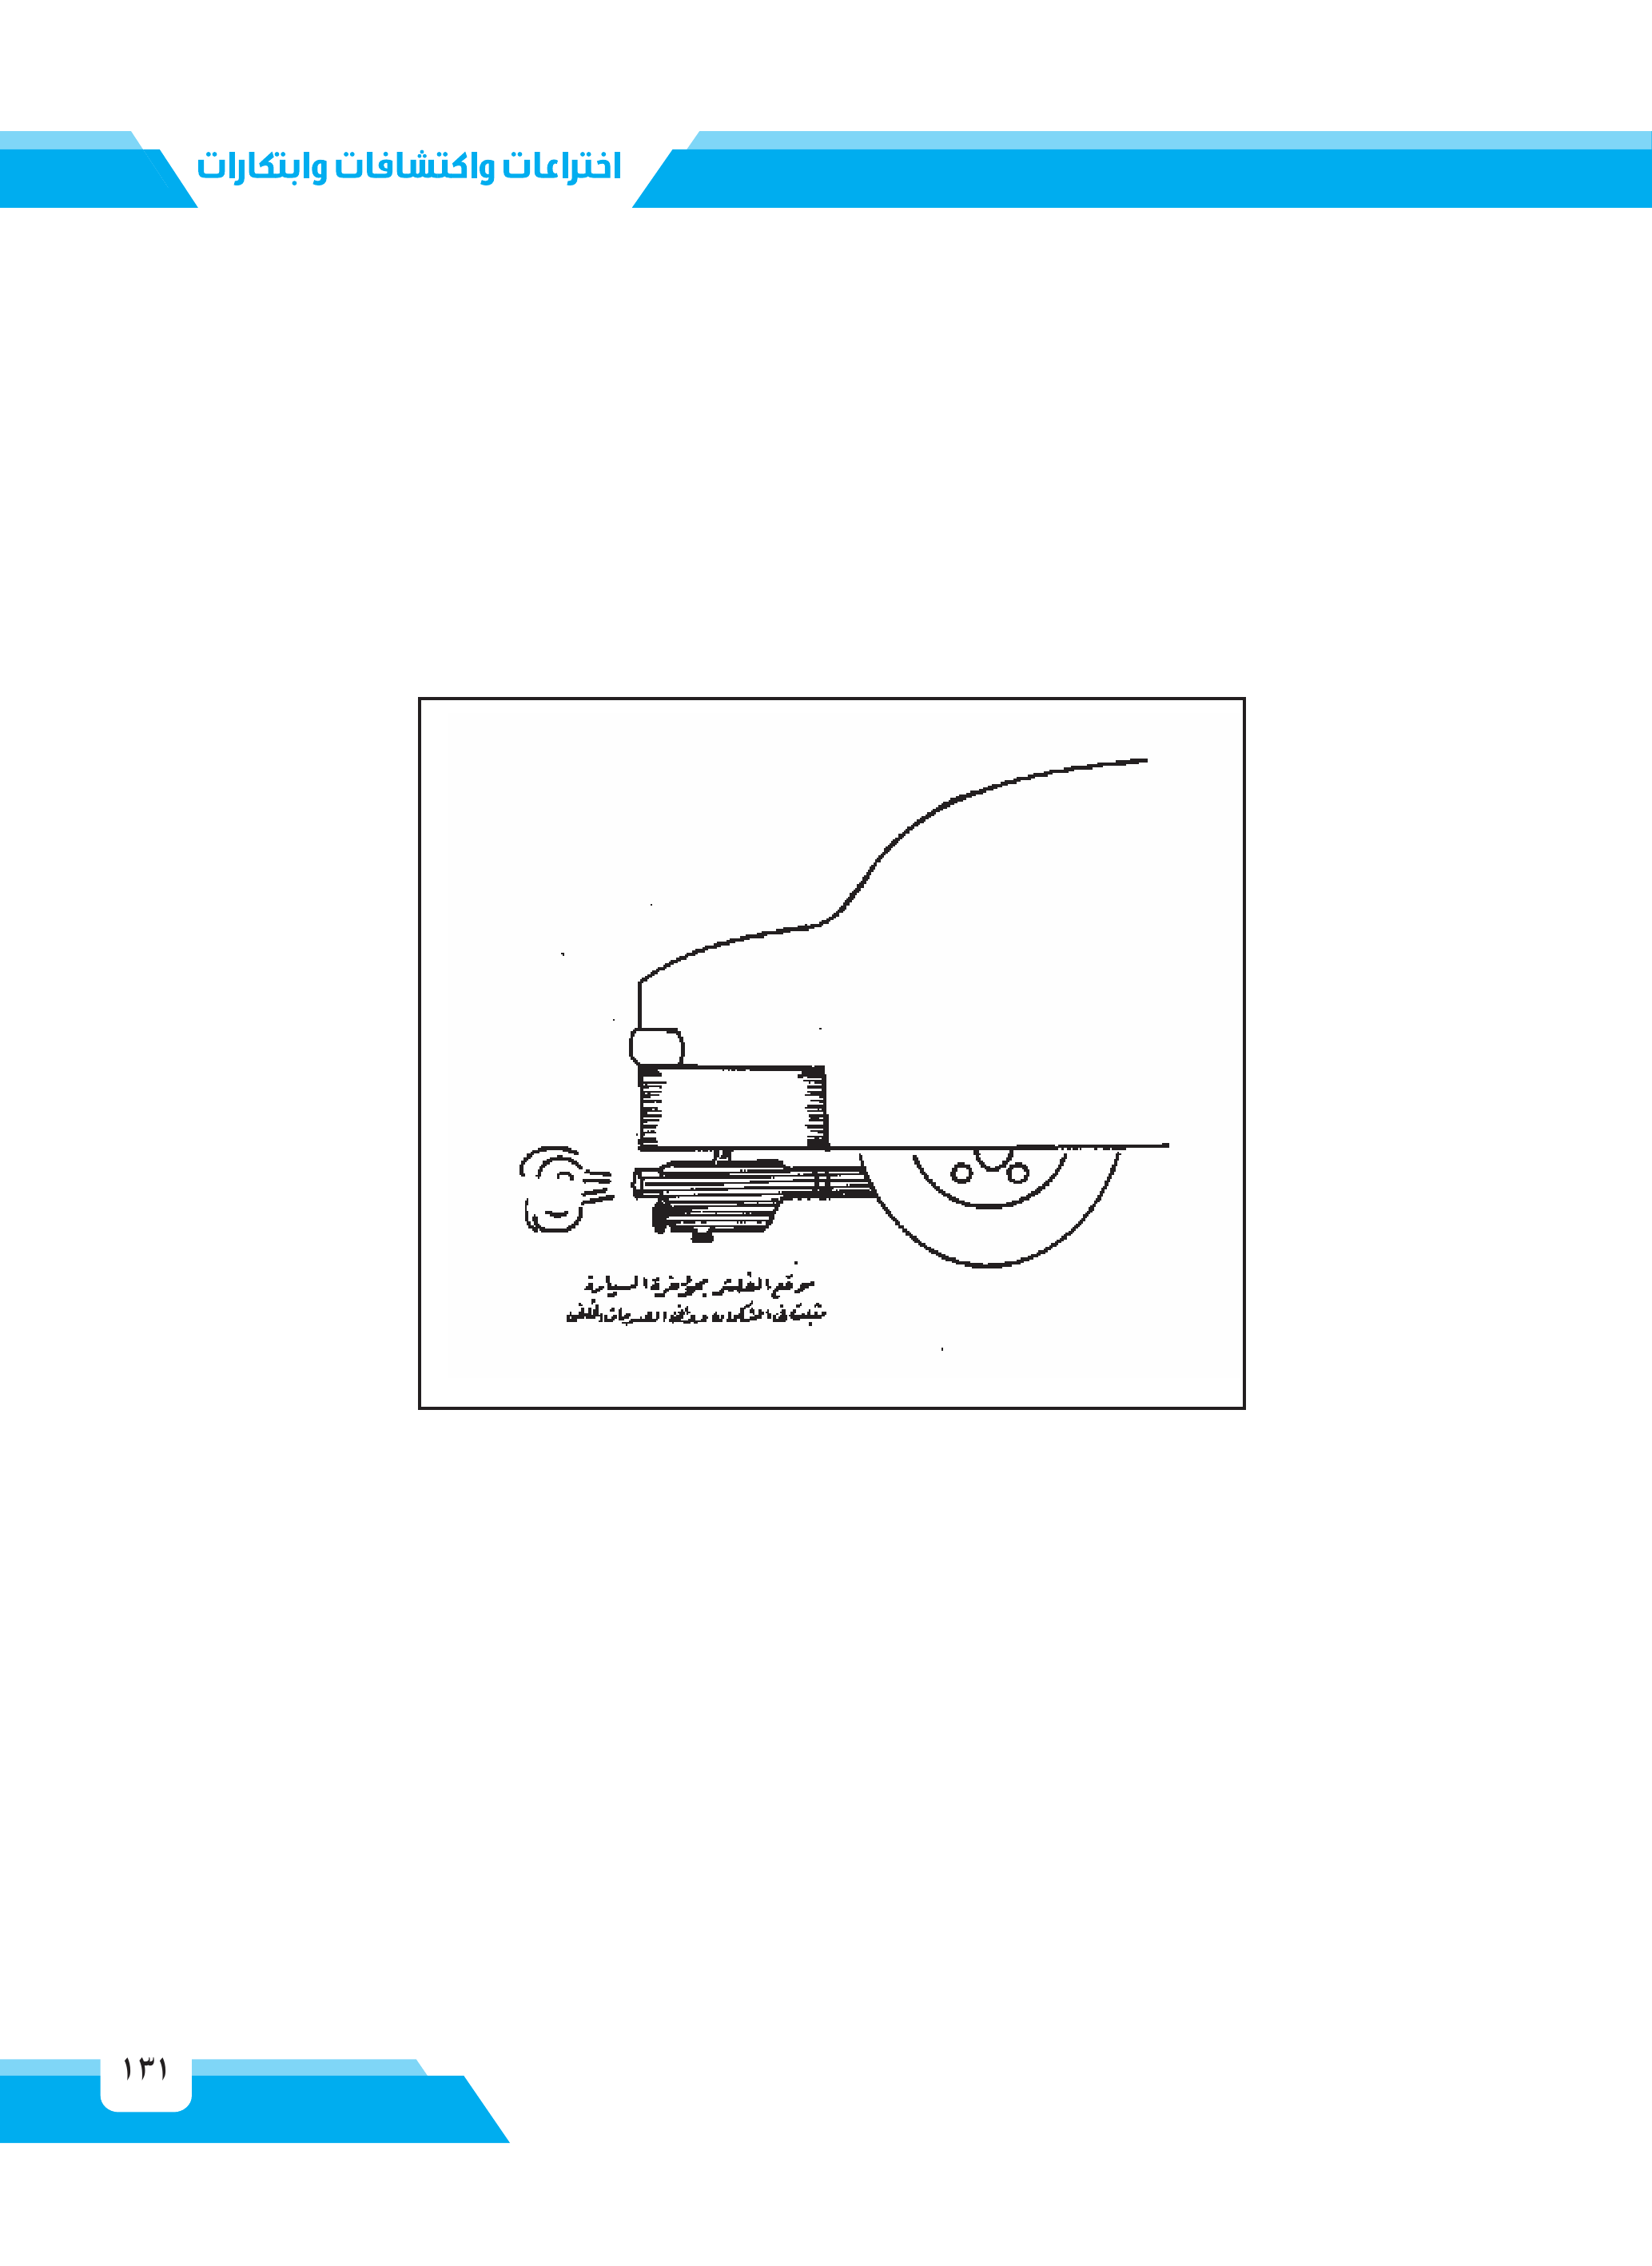 اختراعات واكتشافات وابتكارات
موقع الفلتر بمؤخرة السيارة
مثبت في
١٣١